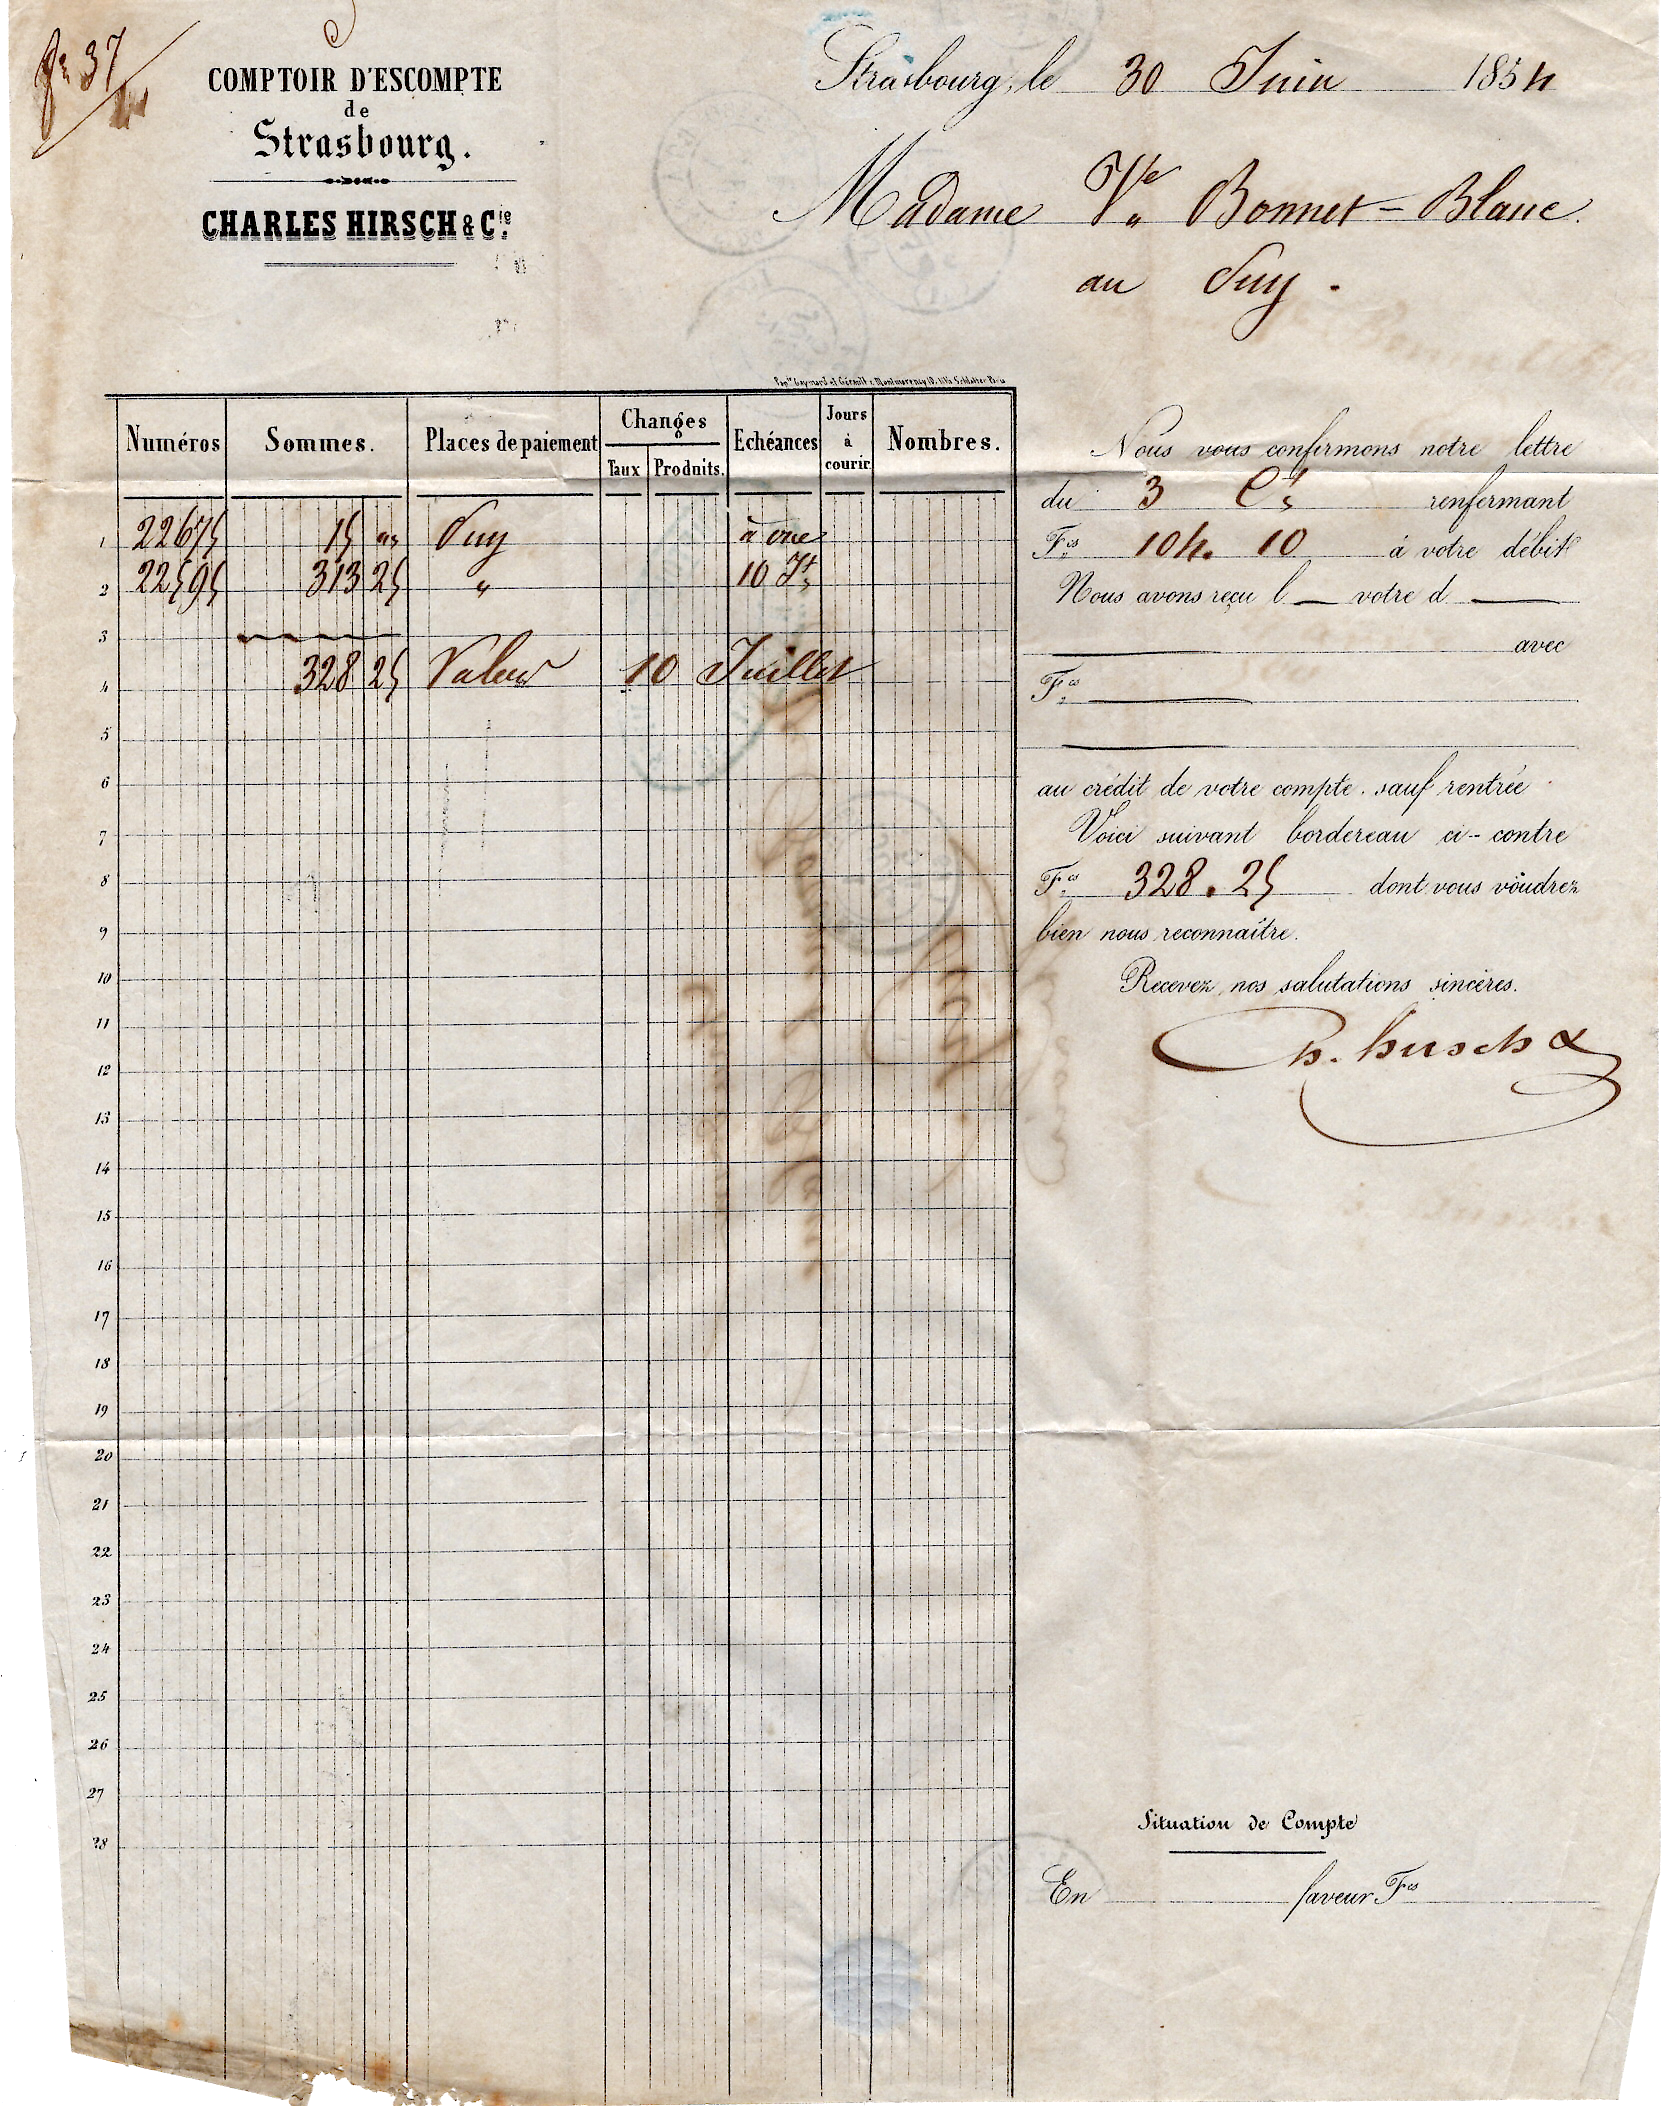 COMPTOIR D'ESCOMPTE
de
Strasbourg.
CHARLES HIRSCH & Cie
Strasbourg, le 30 Juin 1854
Madame Ve Bonnet-Blanc.
au Puy.
Numéros Sommes. Places de paiement Changes Taux Produits. Echéances Jours à courir Nombres.
1 22675 15 " Puy à vue
2 22595 313 25 " 10 Jt
3
4 328 25 Valeur 10 Juillet
5
6
7
8
9
10
11
12
13
14
15
16
17
18
19
20
21
22
23
24
25
26
27
28
Nous vous confirmons notre lettre
du 3 Ct renfermant
Fcs 104. 10 à votre débit
Nous avons reçu l votre d
avec
Fcs
au crédit de votre compte. sauf rentrée
Voici suivant bordereau ci-contre
Fcs 328.25 dont vous voudrez
bien nous reconnaître.
Recevez nos salutations sincères.
Ch. Hirsch &
Situation de Compte
En faveur Fcs